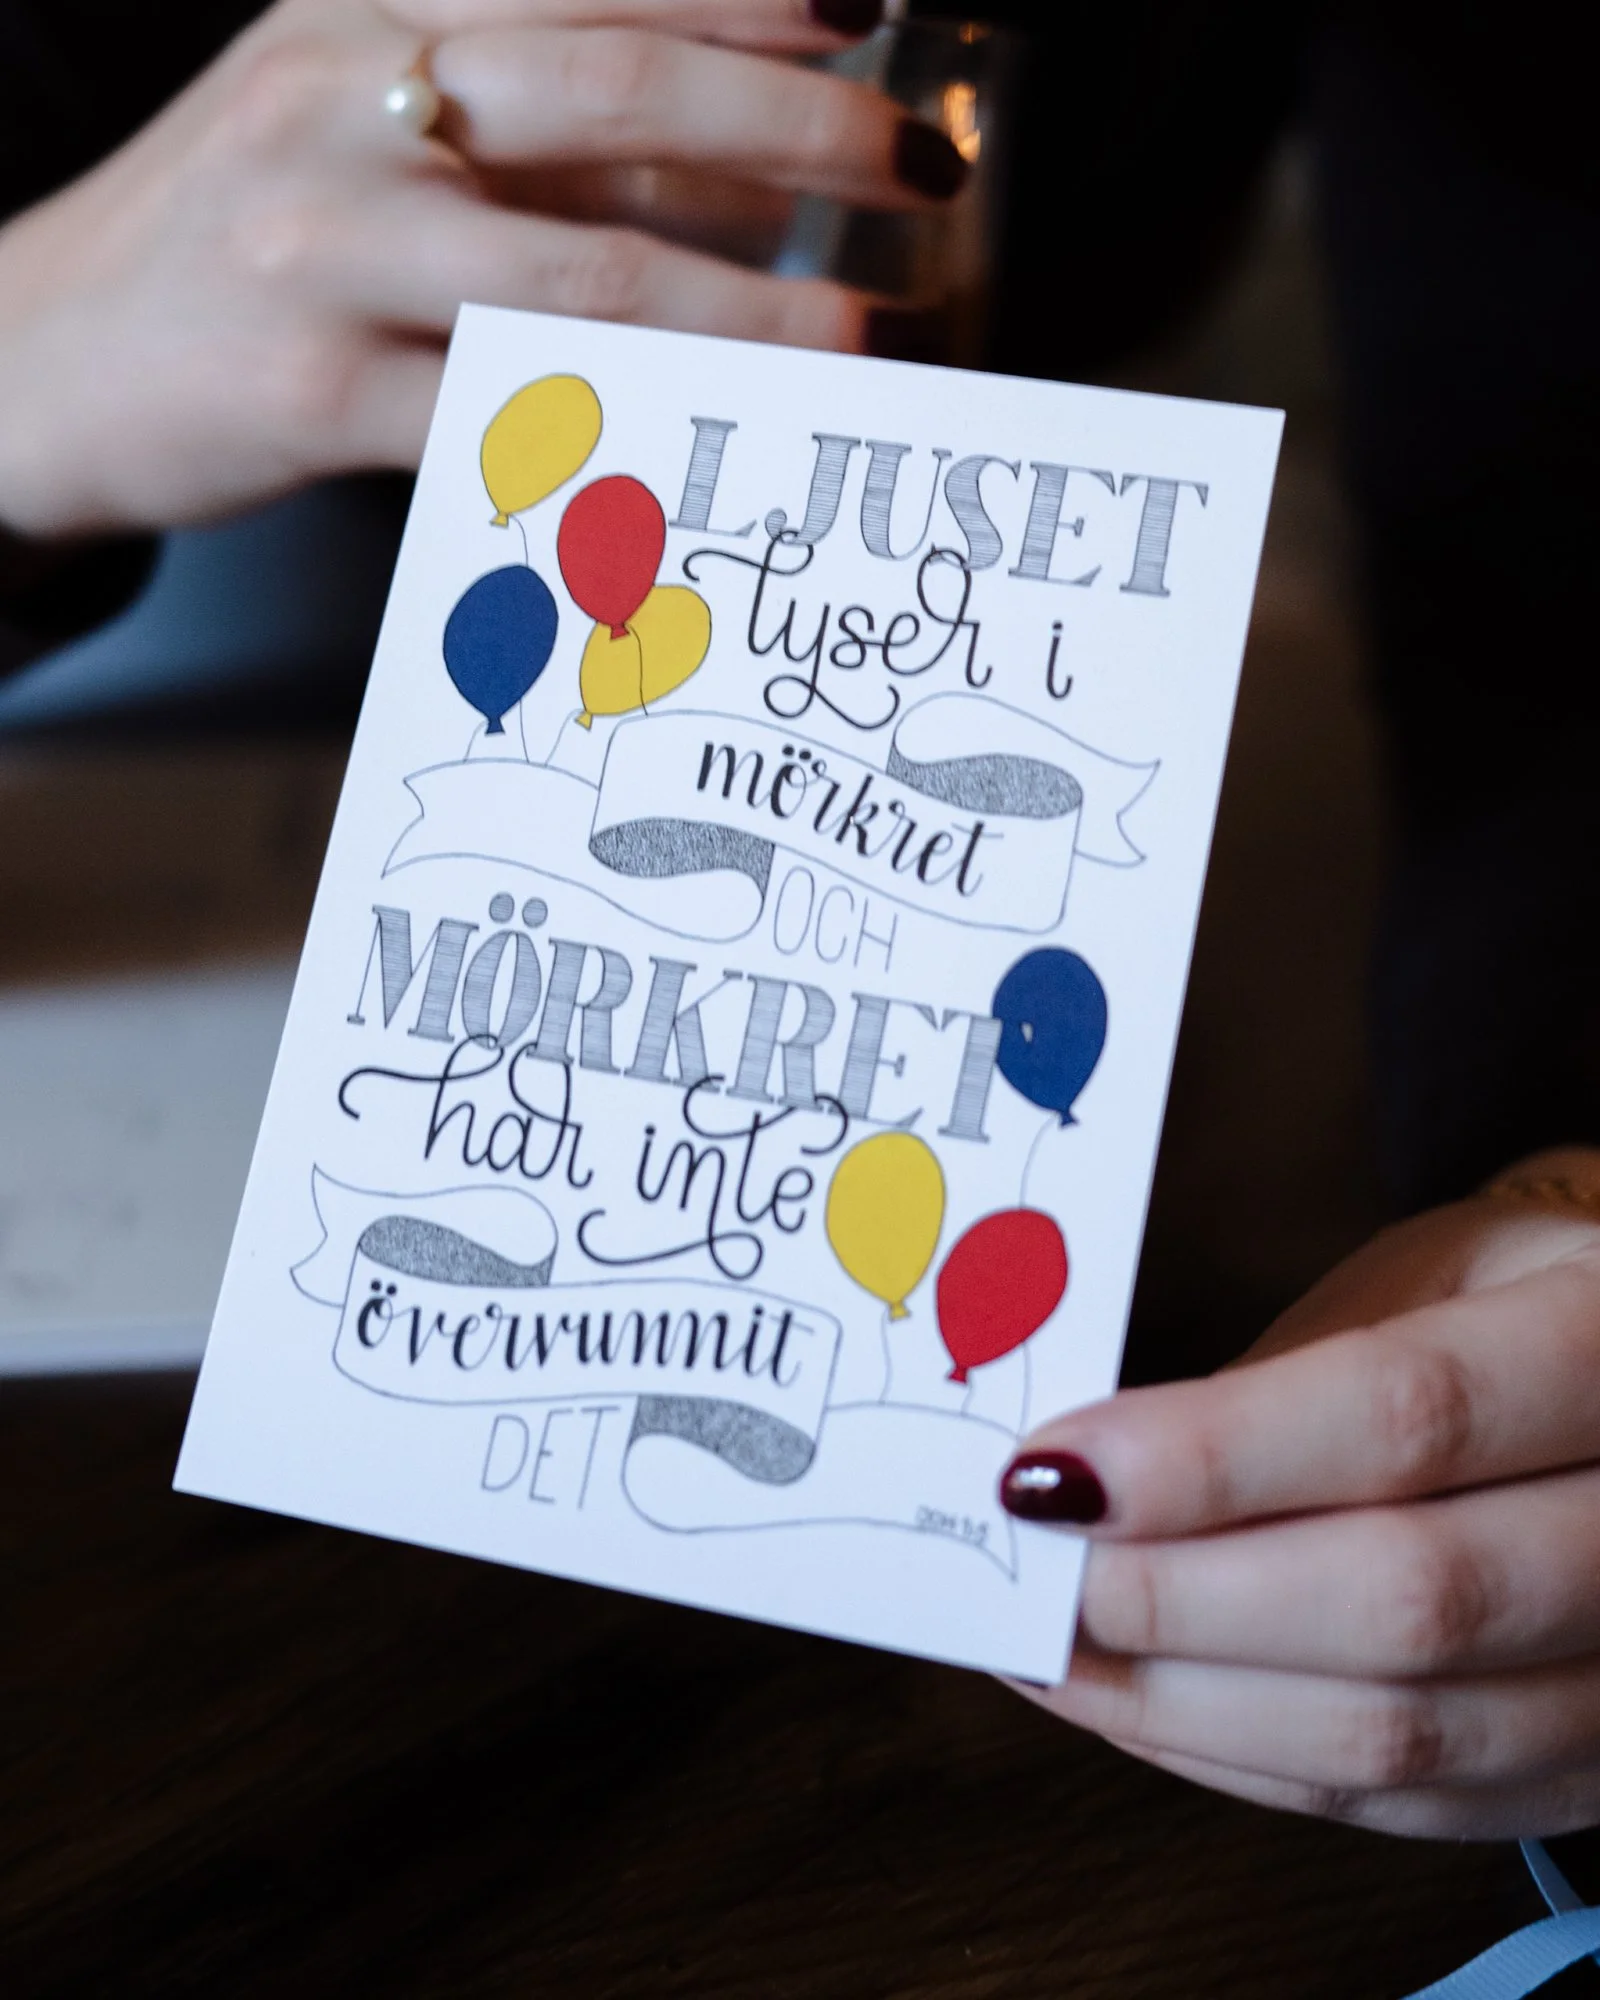 LJUSET
lyser i
mörkret
OCH
MÖRKRET
har inte
övervunnit
DET
JOH 1:5